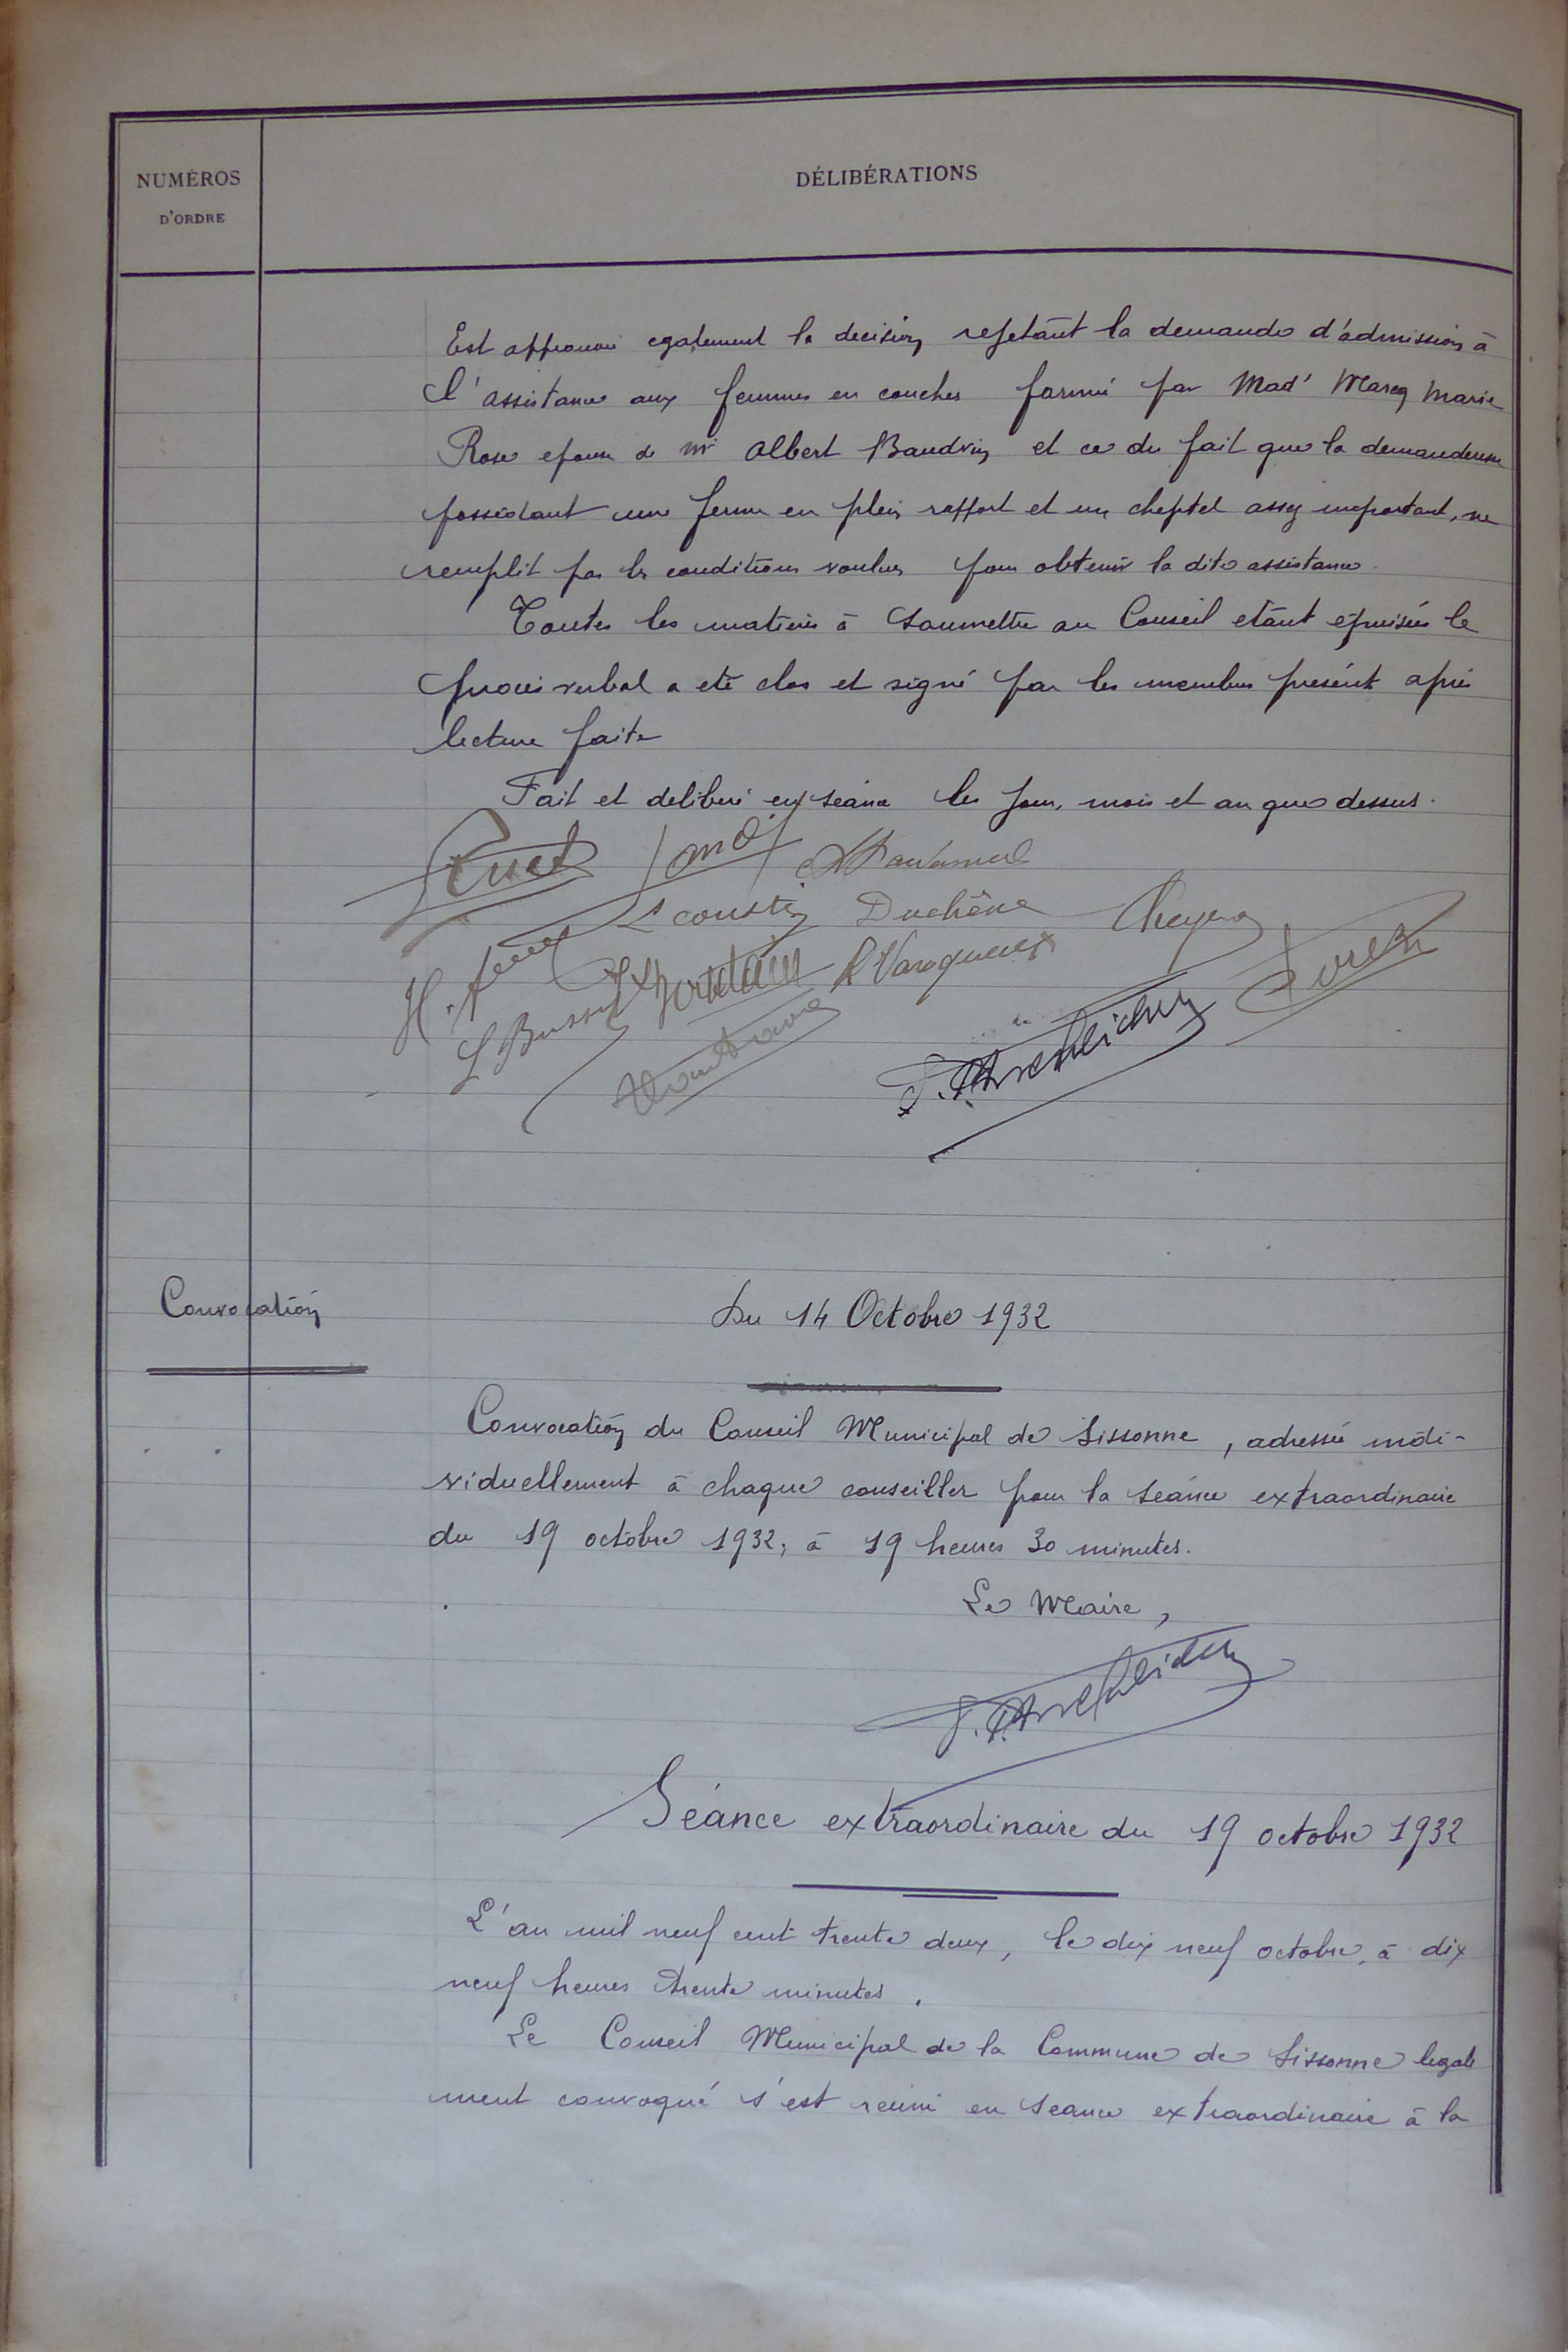 NUMÉROS
D'ORDRE
DÉLIBÉRATIONS
Est approuvé egalement la decision rejetant la demande d'admission à
l'assistance aux femmes en couches formé par Mad' Marcq Marie
Rose epouse de Mr Albert Baudvin et ce du fait que la demandeuse
possédant une ferme en plein rapport et un cheptel assez important, ne
remplit pas les conditions voulues pour obtenir la dite assistance.
Toutes les matières à soumettre au Conseil etant épuisées le
procès verbal a eté clos et signé par les membres présents après
lecture faite
Fait et deliberé en séance les jour, mois et an que dessus.
Duchêne
Convocation
Du 14 Octobre 1932
Convocation du Conseil Municipal de Sissonne, adressée indi-
viduellement à chaque conseiller pour la séance extraordinaire
du 19 octobre 1932, à 19 heures 30 minutes.
Le Maire,
Séance extraordinaire du 19 octobre 1932
L'an mil neuf cent trente deux, le dix neuf octobre, à dix
neuf heures trente minutes.
Le Conseil Municipal de la Commune de Sissonne legale
ment convoqué s'est reuni en seance extraordinaire à la